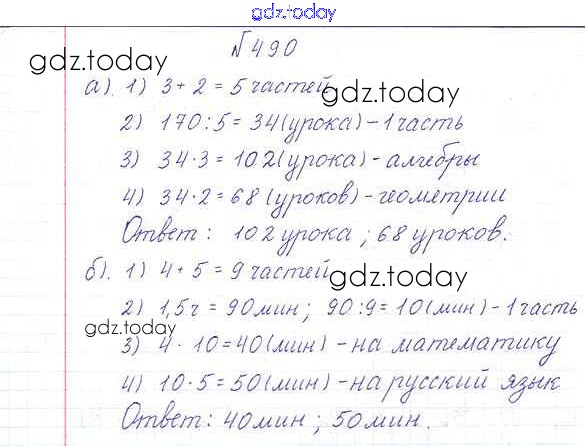 gdz.today
№490
gdz.today
а). 1) 3+2=5 частей
gdz.today
2) 170:5=34(урока)-1 часть
3) 34·3=102(урока)-алгебры
4) 34·2=68(уроков)-геометрии
Ответ: 102 урока; 68 уроков.
б). 1) 4+5=9 частей
gdz.today
2) 1,5ч=90мин; 90:9=10(мин)-1 часть
gdz.today
3) 4·10=40(мин)-на математику
4) 10·5=50(мин)-на русский язык
Ответ: 40мин; 50мин.